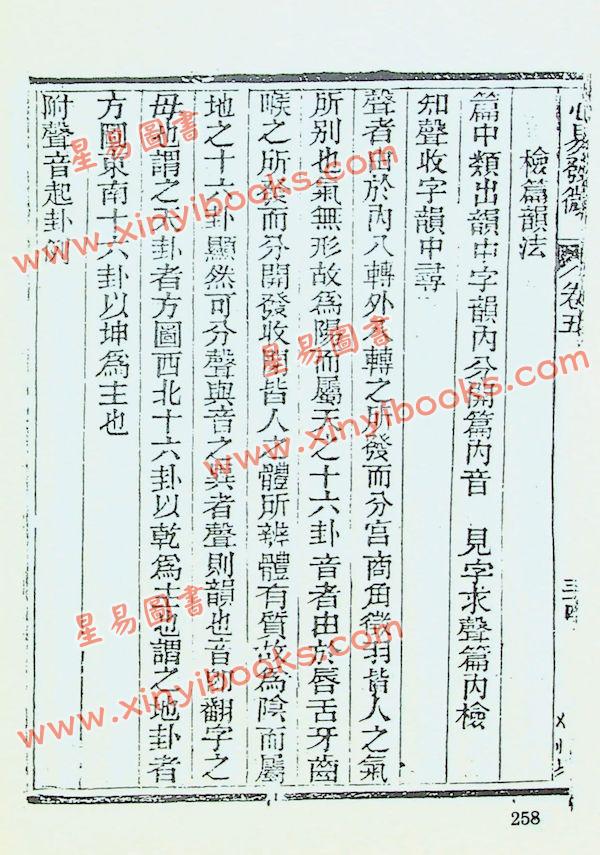 心易發微 卷五 三四
檢篇韻法
篇中類出韻中字韻內分開篇內音　見字求聲篇內檢
知聲收字韻中尋
聲者由於內八轉外八轉之所發而分宮商角徵羽皆人之氣
所別也氣無形故爲陽而屬天之十六卦音者由於唇舌牙齒
喉之所發而分開發收閉皆人之體所辨體有質故爲陰而屬
地之十六卦顯然可分聲與音之異者聲則韻也音即翻字之
母也謂之天卦者方圖西北十六卦以乾爲主也謂之地卦者
方圖東南十六卦以坤爲主也
附聲音起卦例
258
星易圖書
www.xinyibooks.com
星易圖書
www.xinyibooks.com
星易圖書
www.xinyibooks.com